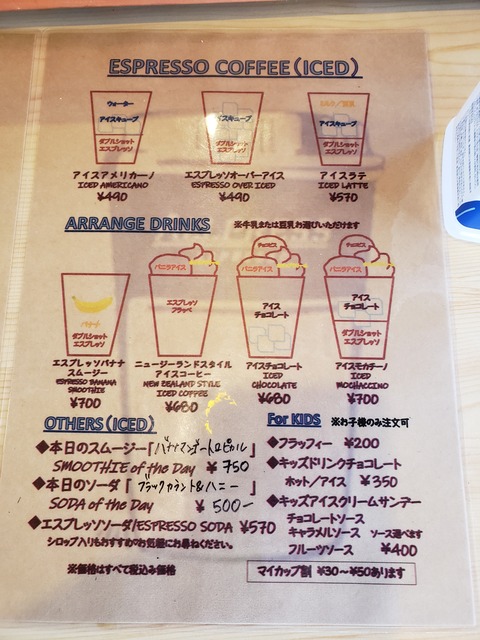 ESPRESSO COFFEE (ICED)
ウォーター
アイスキューブ
ダブルショット
エスプレッソ
アイスキューブ
ダブルショット
エスプレッソ
ミルク/豆乳
アイスキューブ
ダブルショット
エスプレッソ
アイスアメリカーノ
ICED AMERICANO
¥490
エスプレッソオーバーアイス
ESPRESSO OVER ICED
¥490
アイスラテ
ICED LATTE
¥570
ARRANGE DRINKS
※牛乳または豆乳お選びいただけます
バナナ
ダブルショット
エスプレッソ
バニラアイス
エスプレッソ
フラッペ
チョコピス
バニラアイス
アイス
チョコレート
チョコピス
バニラアイス
アイス
チョコレート
ダブルショット
エスプレッソ
エスプレッソバナナ
スムージー
ESPRESSO BANANA
SMOOTHIE
¥700
ニュージーランドスタイル
アイスコーヒー
NEW ZEALAND STYLE
ICED COFFEE
¥680
アイスチョコレート
ICED
CHOCOLATE
¥680
アイスモカチーノ
ICED
MOCHACCINO
¥700
OTHERS (ICED)
◆本日のスムージー「バナナマンゴートロピカル」
SMOOTHIE of the Day ¥750
◆本日のソーダ「ブラックカラント&ハニー」
SODA of the Day ¥500-
◆エスプレッソソーダ/ESPRESSO SODA ¥570
シロップ入りもおすすめ♪お気軽にお尋ねください。
※価格はすべて税込み価格
For KIDS ※お子様のみ注文可
◆フラッフィー ¥200
◆キッズドリンクチョコレート
ホット/アイス ¥350
◆キッズアイスクリームサンデー
チョコレートソース
キャラメルソース ソース選べます
フルーツソース ¥400
マイカップ割 ¥30~¥50あります